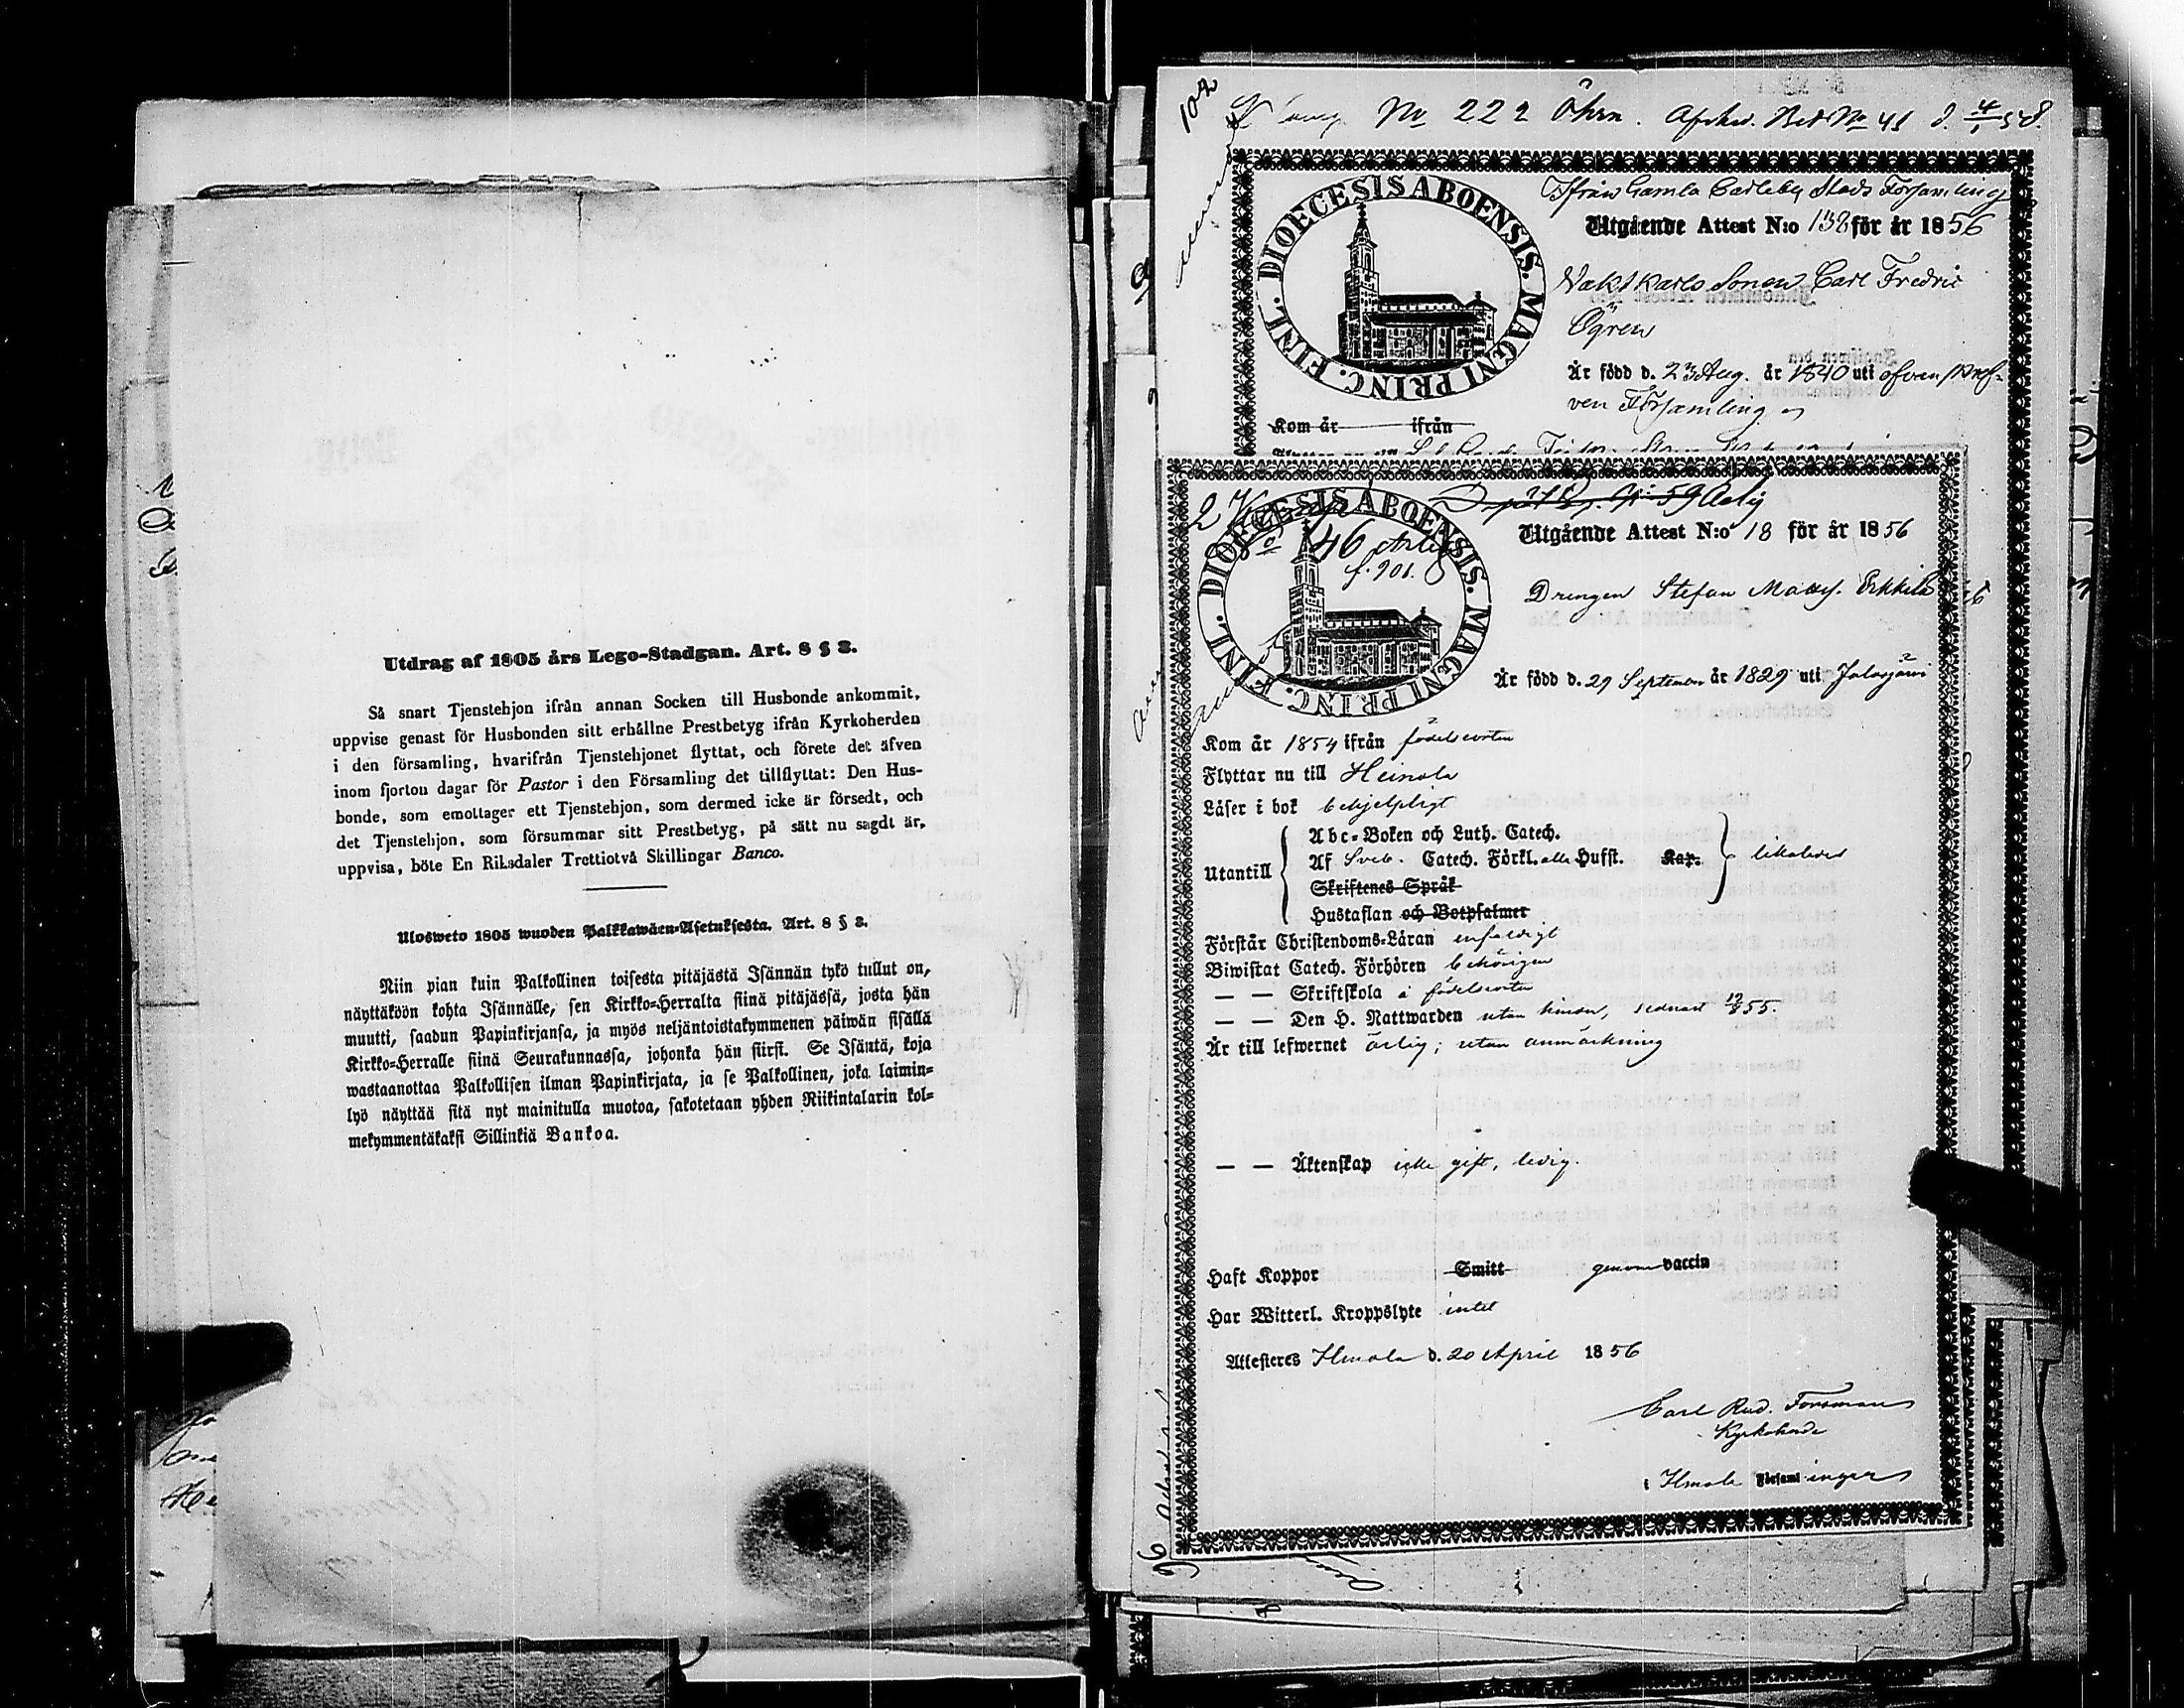 Utdrag af 1805 års Lego-Stadgan. Art. 8 § 3.
Så snart Tjenstehjon ifrån annan Socken till Husbonde ankommit,
uppvise genast för Husbonden sitt erhållne Prestbetyg ifrån Kyrkoherden
i den församling, hvarifrån Tjenstehjonet flyttat, och förete det äfven
inom fjorton dagar för Pastor i den Församling det tillflyttat: Den Hus-
bonde, som emottager ett Tjenstehjon, som dermed icke är försedt, och
det Tjenstehjon, som försummar sitt Prestbetyg, på sätt nu sagdt är,
uppvisa, böte En Riksdaler Trettiotvå Skillingar Banco.
Ulosweto 1805 wuoden Palkkawäen-Asetuksesta. Art. 8 § 3.
Niin pian kuin Palkollinen toisesta pitäjästä Isännän tykö tullut on,
näyttäköön kohta Isännälle, sen Kirkko-Herralta siinä pitäjässä, josta hän
muutti, saadun Papinkirjansa, ja myös neljäntoistakymmenen päiwän sisällä
Kirkko-Herralle siinä Seurakunnassa, johonka hän siirsi. Se Isäntä, koja
wastaanottaa Palkollisen ilman Papinkirjata, ja se Palkollinen, joka laimin-
lyö näyttää sitä nyt mainitulla muotoa, sakotetaan yhden Riikintalarin kol-
mekymmentäkaksi Sillinkiä Bankoa.
108
No 222 Öhrn. Afsked. Bet No 41 d. 4/1 58.
Ifrån Gamla Carleby Stads Församling
DIOECESIS ABOENSIS. MAGNI PRINC. FINL.
Utgående Attest N:o 138 för år 1856
Vaktkarls Sonen Carl Fredric
Ögren
Är född d. 23 Aug. år 1840 uti ofvanskref-
ven Församling
Kom år ifrån
46
f. 901.
DIOECESIS ABOENSIS. MAGNI PRINC. FINL.
Utgående Attest N:o 18 för år 1856
Drengen Stefan Matts. Erkkilä
Är född d. 29 September år 1829 uti Jalasjärvi
Kom år 1854 ifrån födelseorten
Flyttar nu till Heinola
Läser i bok behjelpligt
Utantill
Abc-Boken och Luth. Catech.
Af Sveb. Catech. Förkl. alla Hufst. Kap. likaledes
Skriftenes Språk
Hustaflan och Botpsalmer
Förstår Christendoms-Läran enfaldigt
Biwistat Catech. Förhören behörigen
— — Skriftskola i födelseorten
— — Den H. Nattwarden utan hinder, sednast 12/8 55.
Är till lefwernet ärlig; utan anmärkning
— — Äktenskap icke gift, ledig.
Haft Koppor Smitt genom vaccin
Har Witterl. Kroppslyte intet
Attesteres Ilmola d. 20 April 1856
Carl Rud. Forsman
Kyrkoherde
i Ilmola Församlingar